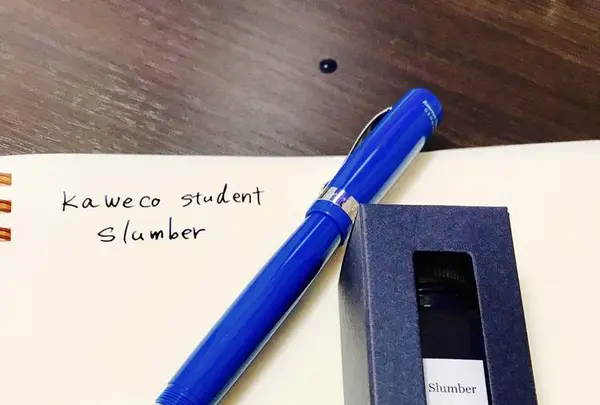 Kaweco student
Slumber
Slumber